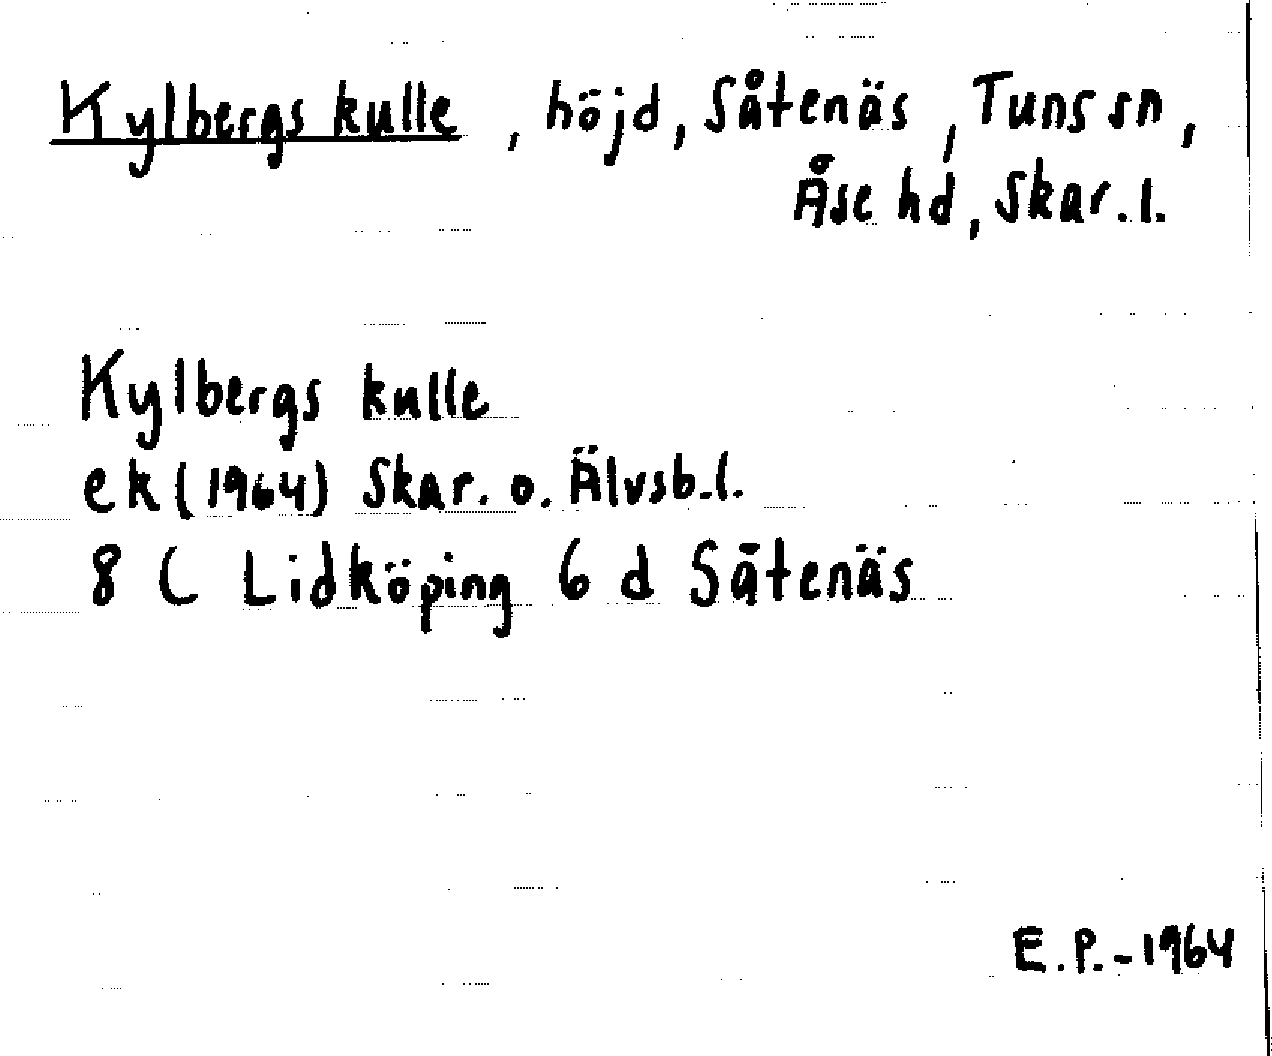 Kylbergs kulle, höjd, Såtenäs, Tuns sn,
Åse hd, Skar. l.
Kylbergs kulle
ek (1964) Skar. o. Älvsb. l.
8 C Lidköping 6 d Såtenäs
E.P. - 1964